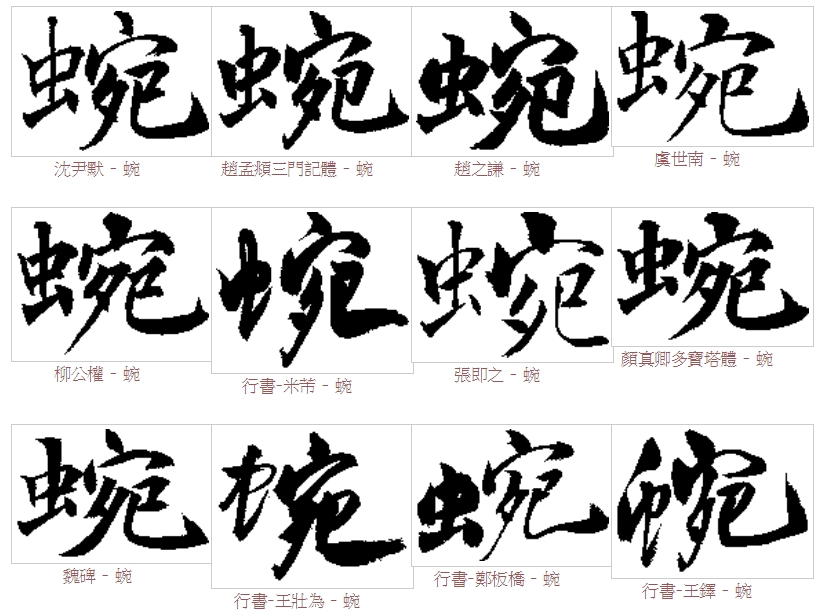 蜿 蜿 蜿 蜿
沈尹默 - 蜿 趙孟頫三門記體 - 蜿 趙之謙 - 蜿 虞世南 - 蜿
蜿 蜿 蜿 蜿
柳公權 - 蜿 行書-米芾 - 蜿 張即之 - 蜿 顏真卿多寶塔體 - 蜿
蜿 蜿 蜿 蜿
魏碑 - 蜿 行書-王壯為 - 蜿 行書-鄭板橋 - 蜿 行書-王鐸 - 蜿